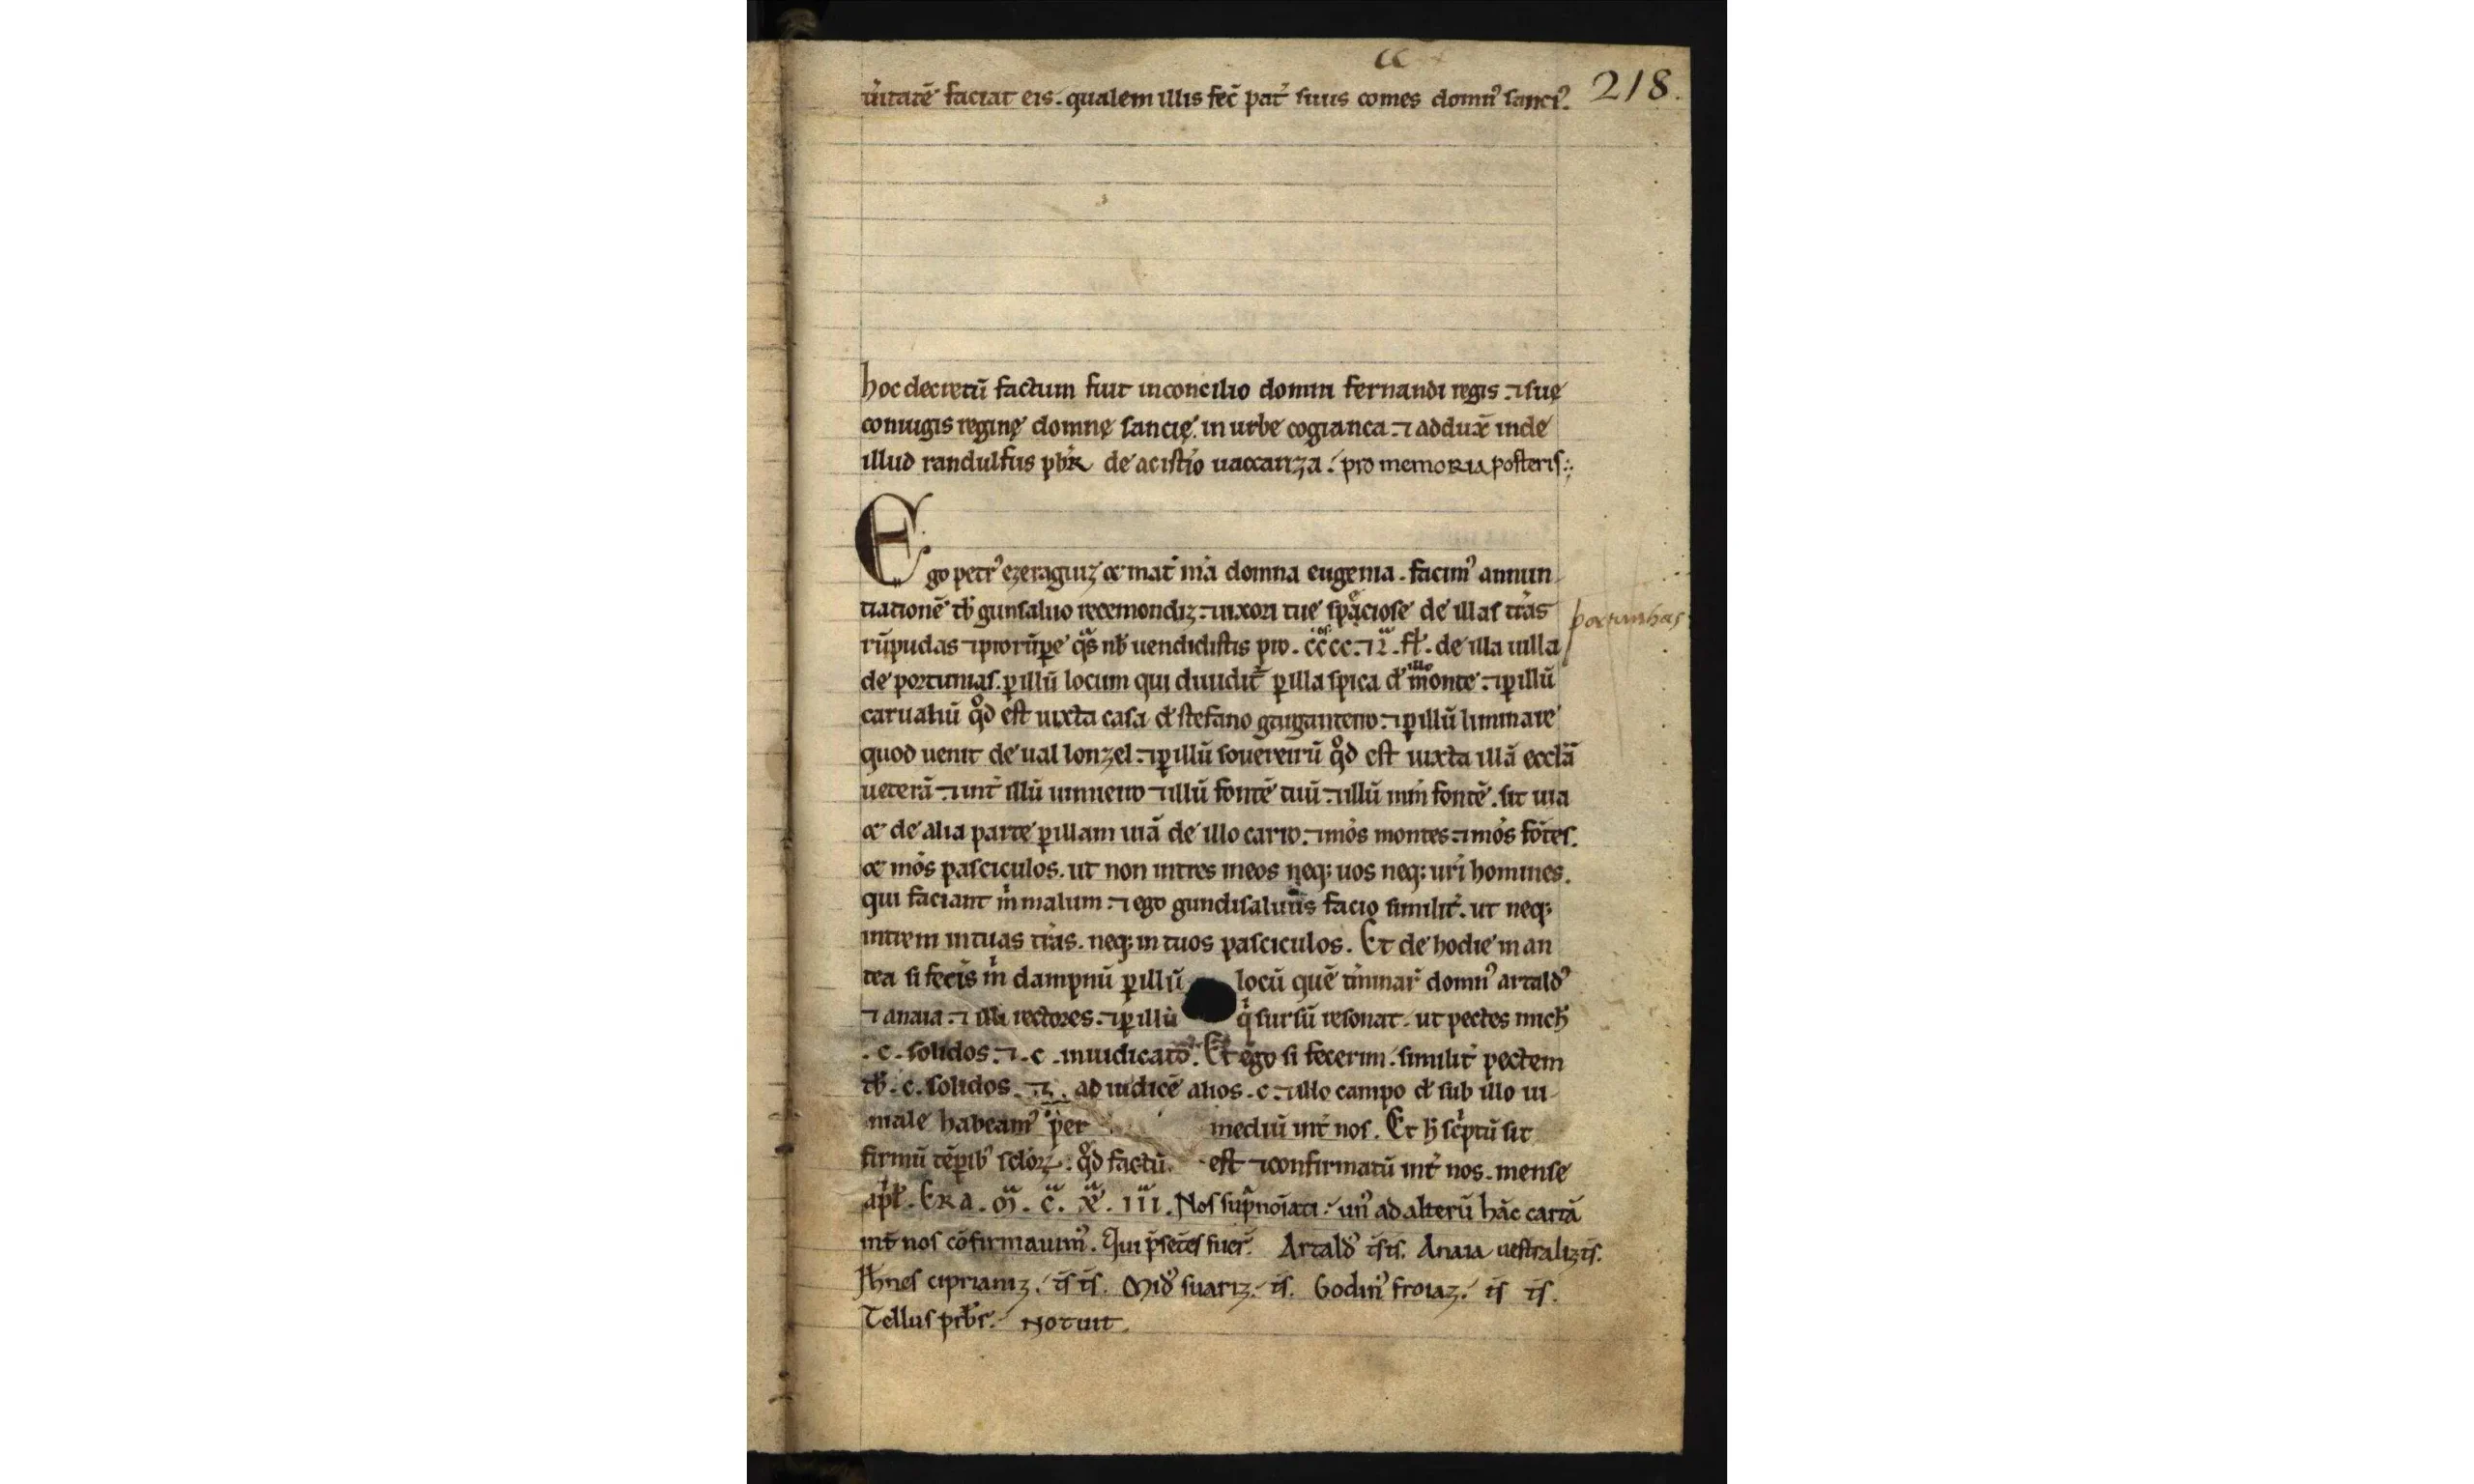 cc
218.
ũitatẽ faciat eis. qualem illis fec̃ pat̃ suus comes domn᾽ sanci᾽.
hoc decretũ factum fuit inconcilio domni fernandi regis. ⁊ suę
coniugis reginę domnę sancię. in urbe cogianca. ⁊ addux̃ inde
illud randulfus pb̃r de acistr̃io uaccariza. pro memoria posteris:
Ego petr᾽ ezeraguiz & mat̃ m̃a domna eugenia. facim᾽ annun
tiationẽ tb̃ gunsaluo recemondiz. ⁊ uxori tue spaciose de illas tr̃as
rũpudas ⁊ pro rũpe q̃s nb̃ uendidistis pro. cccc. ⁊ de illa uilla
portunhas
de portunias. ꝑ illũ locum qui diuidit̃ ꝑ illa spica đ illo monte. ⁊ ꝑ illũ
carualiũ qd̃ est iuxta casa đ stefano gauganteiro. ⁊ ꝑ illũ liminare
quod uenit de ual lonzel. ⁊ ꝑ illũ souereirũ qd̃ est iuxta illã eccl̃ã
ueterã. ⁊ int̃ illũ uimieiro ⁊ illũ fontẽ tuũ. ⁊ illũ m̃m fontẽ. sit uia
& de alia parte ꝑ illam uiã de illo carro. ⁊ m̃os montes. ⁊ m̃os fõtes.
& m̃os pasciculos. ut non intres meos neq; uos neq; ur̃i homines.
qui faciant m̃ malum. ⁊ ego gundisaluus facio similit̃. ut neq;
intrem in tuas tr̃as. neq; in tuos pasciculos. Et de hodie in an
tea si fecis m̃ dampnũ ꝑ illũ locũ quẽ t̃minar̃ domn᾽ artald᾽
⁊ anaia. ⁊ illi rectores. ⁊ ꝑ illũ q̃ sursũ resonat. ut pectes mich̃
.c. solidos. ⁊ .c. in iudicato. Et ego si fecerim. similit̃ pectem
tb̃ .c. solidos. ⁊ ad iudicẽ alios .c. ⁊ illo campo đ sub illo ui
male habeam᾽ per mediũ int̃ nos. Et h̃ sc̃ptũ sit
firmũ tẽporib᾽ sc̃lorꝝ. qd̃ factũ est ⁊ confirmatũ int̃ nos. mense
apl̃. Era. m̃. c̃. x̃. iii. Nos sup̃noĩati. un᾽ ad alterũ hãc cartã
int̃ nos cõfirmauim᾽. Qui p̃sẽtes fuer̃. Artald᾽ ts̃ts̃. Anaia uestraliz ts̃.
Ioh̃nes cipriamz. ts̃ ts̃. Mid᾽ suariz. ts̃. Godin᾽ froiaz. ts̃ ts̃.
Tellus prb̃r. Notuit.